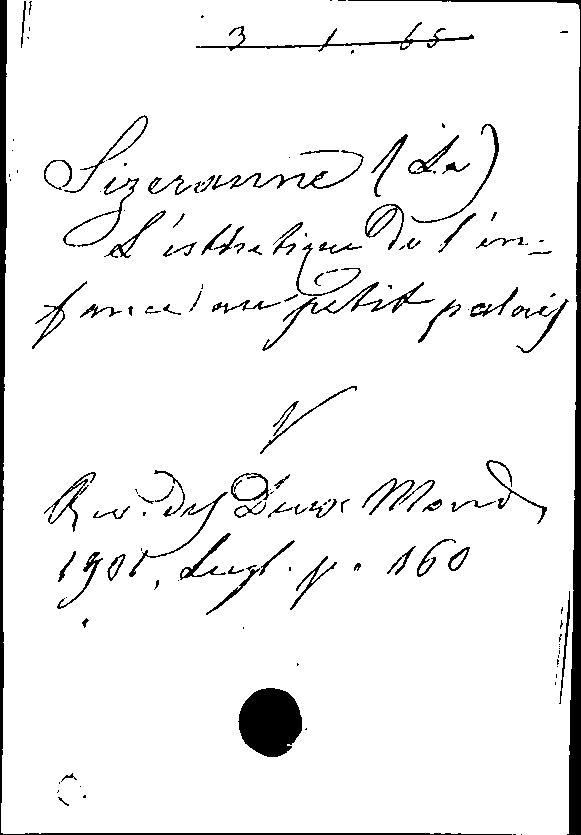 3 1. 65
Sizeranne (La)
L'esthetique de l'en-
fance au petit palais
V
Rev. des Deux Mond.
1901, Lugl. p. 160